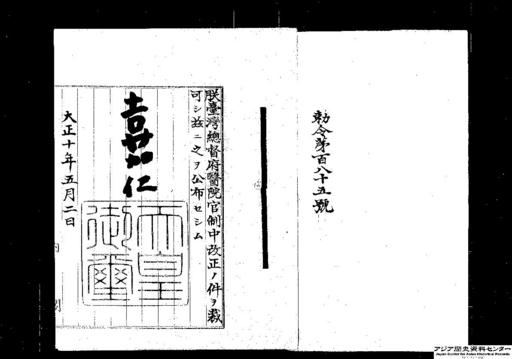 勅令第百八十五號
朕臺灣總督府醫院官制中改正ノ件ヲ裁
可シ茲ニ之ヲ公布セシム
嘉仁
天皇御璽
大正十年五月二日
内
アジア歴史資料センター
Japan Center for Asian Historical Records